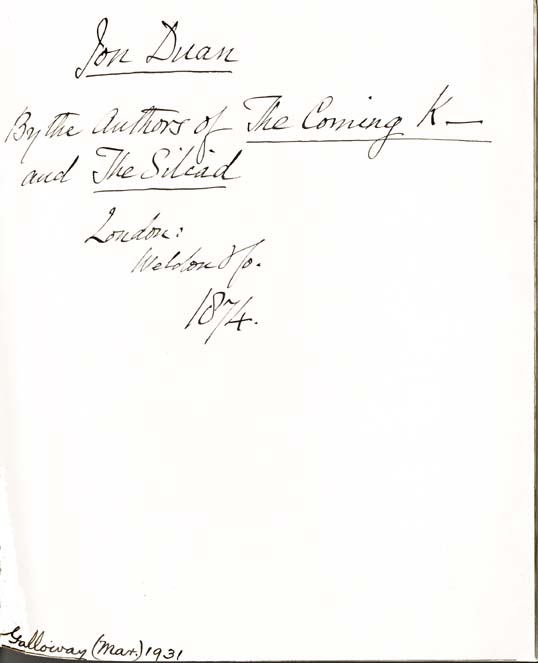 Jon Duan
By the Authors of The Coming K—
and The Siliad
London:
Weldon & Co.
1874.
Galloway (Mar.) 1931